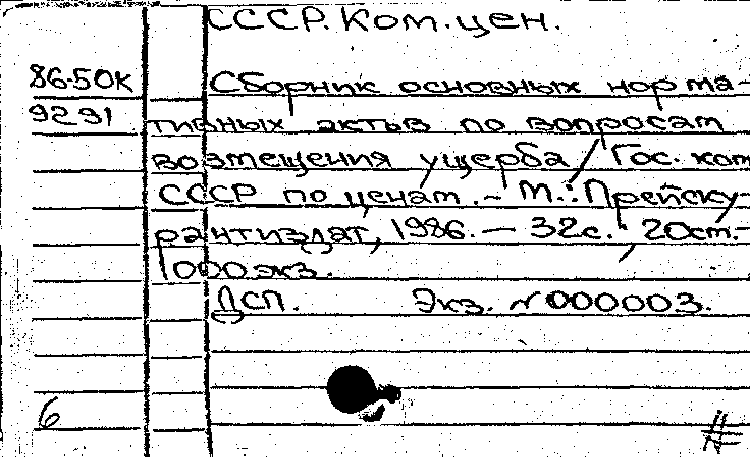 СССР. Ком. цен.
86-50К Сборник основных норма-
9291 тивных актов по вопросам
возмещения ущерба / Гос. ком
СССР по ценам. - М.: Прейску-
рантиздат, 1986. - 32с.; 20см. -
1000экз.
ДСП. Экз. №000003.
6